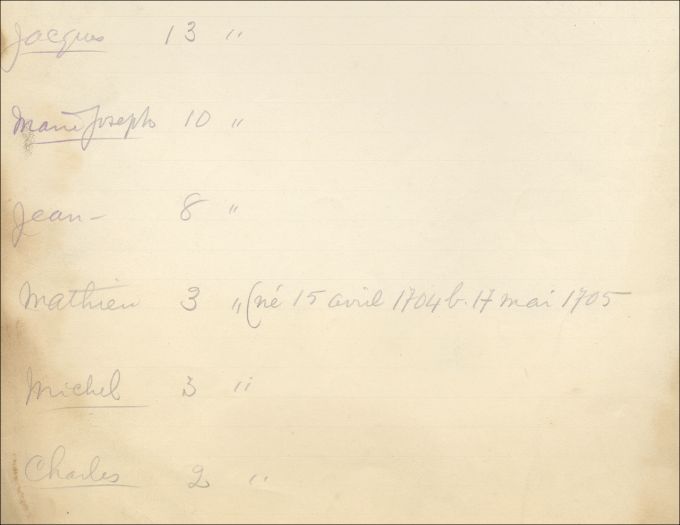 Jacques 13 "
Marie Joseph 10 "
Jean - 8 "
Mathieu 3 " (né 15 avril 1704 b. 17 mai 1705
Michel 3 "
Charles 2 "